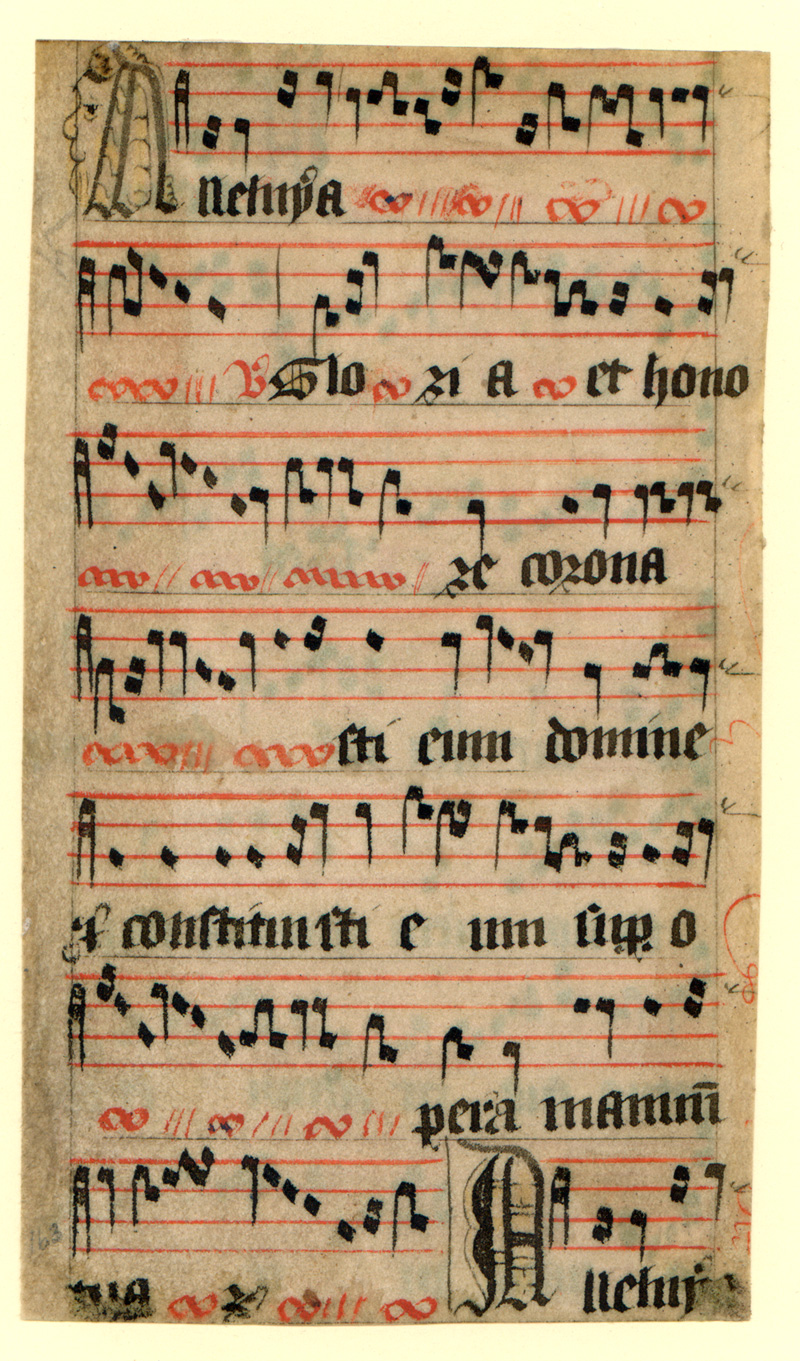 Alleluya
℣ Glo ri a et hono
re corona
sti eum domine
et constituisti e um sup o
pera manuū
tua Alleluy